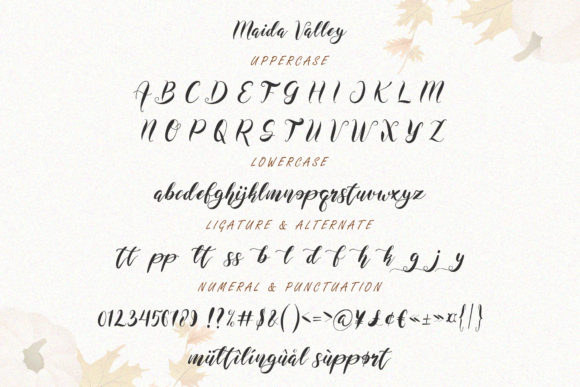 Maida Valley
UPPERCASE
A B C D E F G H I J K L M
N O P Q R S T U V W X Y Z
LOWERCASE
abcdefghijklmnopqrstuvwxyz
LIGATURE & ALTERNATE
tt pp tt ss b l d f h k g j y
NUMERAL & PUNCTUATION
0123456789 !?%#$&()<=>@¥£¢€~±¬¤{|}
müttîlíngùål sùppørt